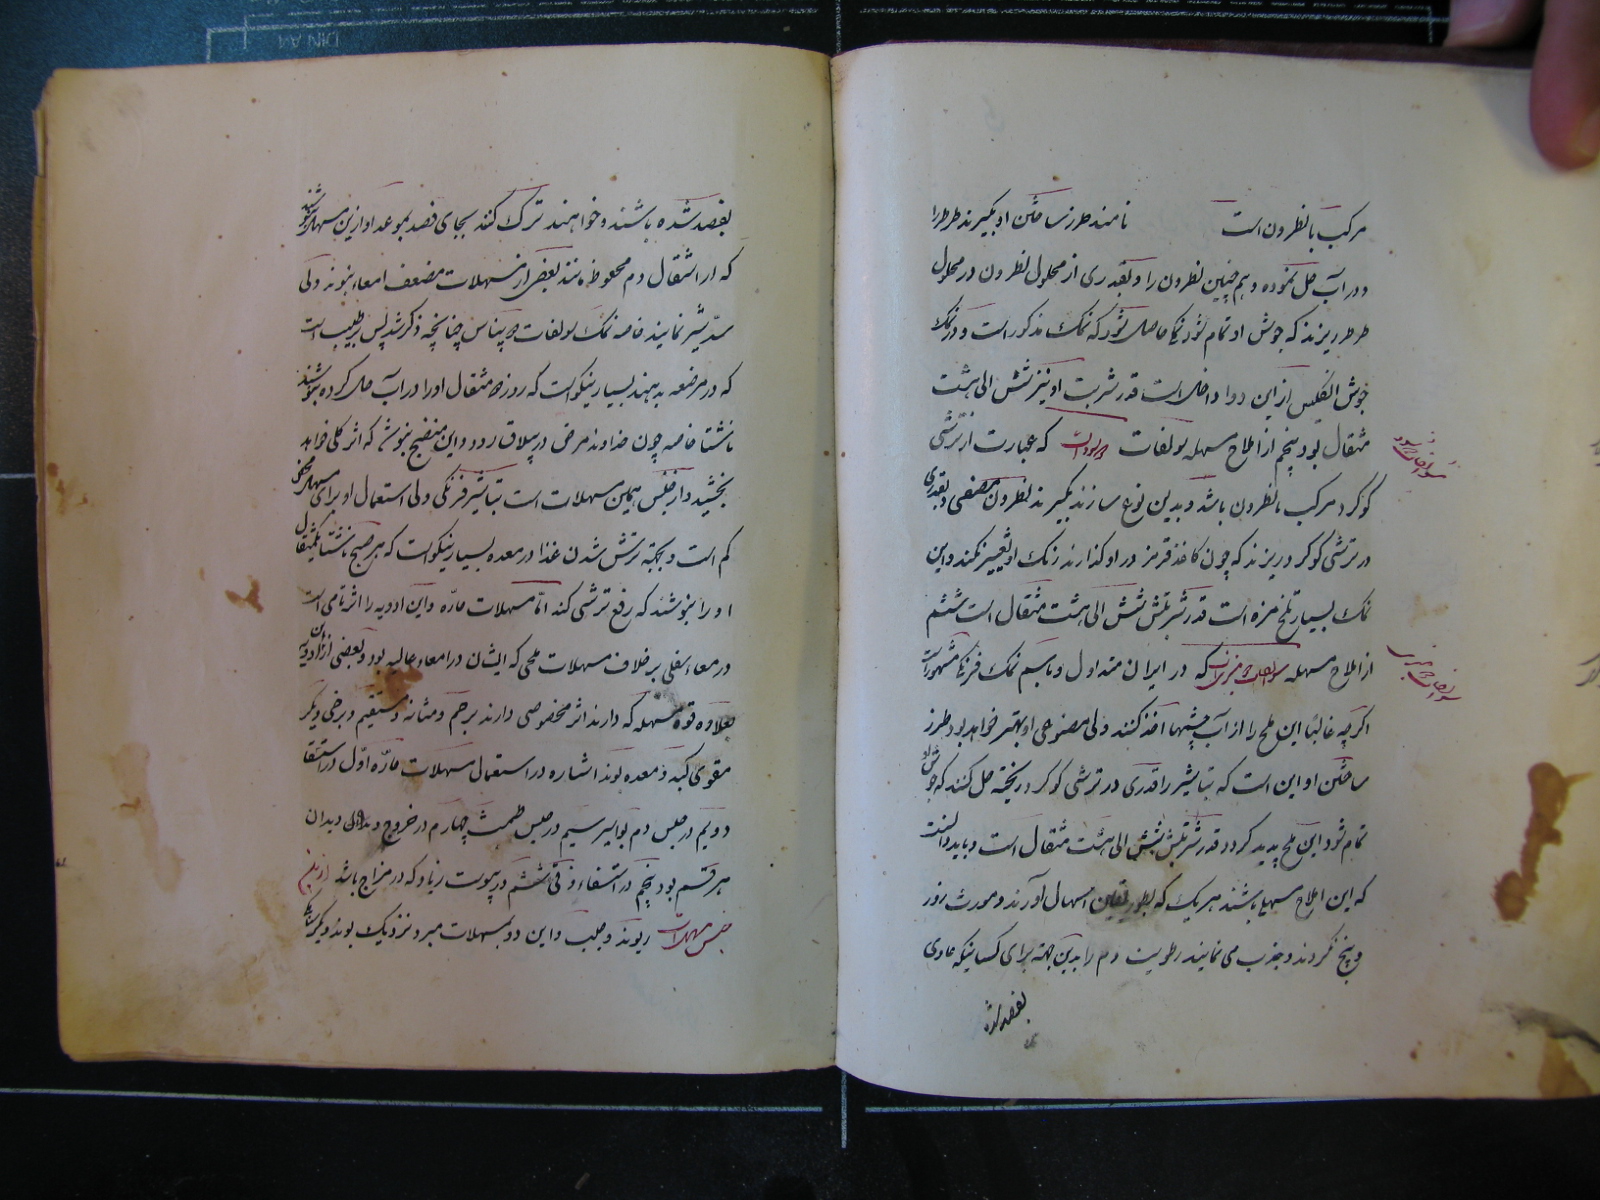 مرکب با نطرون است نامند طرز ساختن او بگیرند طرطر را
و در آب حل نموده و هم چنین نطرون را و بقدری از محلول نطرون در محلول
طرطر ریزند که جوش او تمام شود نمکی حاصل شود که نمک مذکور است و در نمک
جوش انگلیس از این دوا داخل است قدر شربت او نیز شش الی هشت
مثقال بود پنجم از املاح مسهله سولفات که عبارت از ترشی
گوگرد مرکب با نطرون باشد و بدین نوع سازند بگیرند نطرون مصفی و بقدری
در ترشی گوگرد ریزند که چون کاغذ قرمز در او گذارند رنگ او تغییر نکند و این
نمک بسیار تلخ مزه است قدر شربتش شش الی هشت مثقال است ششم
از املاح مسهله که در ایران متداول و باسم نمک فرنگی مشهور است
اگر چه غالبا این ملح را از آب چشمها اخذ کنند ولی مصنوعی او بهتر خواهد بود طرز
ساختن او این است که تباشیر را قدری در ترشی گوگرد ریخته حل کنند که جوش او
تمام شود این ملح پدید گردد قدر شربتش شش الی هشت مثقال است و باید دانست
که این املاح مسهل باشند هر یک که بطور اسهال آورند و مورث زور
و پیچ نگردند و جذب می نمایند رطوبت دم را بدین جهة برای کسانیکه عادی
بفصد شده
بفصد شده باشند و خواهند ترک کنند بجای فصد بموعد او ازین مسهل بنوشند
که از اثقال دم محفوظ مانند بعضی از مسهلات مضعف امعاء بوند ولی
نمایند خاصه نمک سولفات چنانچه ذکر شد پس بر طبیب است
که در مرضعه بدهند بسیار نیکو است که روزه مثقال او را در آب حل کرده بنوشند
ناشتا خاصه چون خداوند مرض در ییلاق رود و این منضج بنوشد که اثر کلی خواهد
بخشید و از جنس همین مسهلات است تباشیر فرنگی ولی استعمال او برای مسهل
کم است و بجهة ترش شدن غذا در معده بسیار نیکو است که هر صبح ناشتا یکمثقال
او را بنوشند که رفع ترشی کند اما مسهلات حاره و این ادویه را اثر تامی است
در معاء سفلی بر خلاف مسهلات ملحی که ایشان در امعاء عالیه بود و بعضی از این ادویه
بعلاوه قوه مسهله که دارند اثر مخصوصی دارند بر رحم و مثانه و مستقیم و برخی دیگر
مقوی کبد و معده بوند اشاره در استعمال مسهلات حاره اول در استسقا
دویم در حبس دم بواسیر سیم در حبس طمث چهارم در خروج دیدان
هر قسم بود پنجم در استسقاء زقی ششم در یبوست زیاد که در مزاج باشد
جنس مسهلات ریوند و جلب و این دو بمسهلات مبرد نزدیک بوند و دیگر